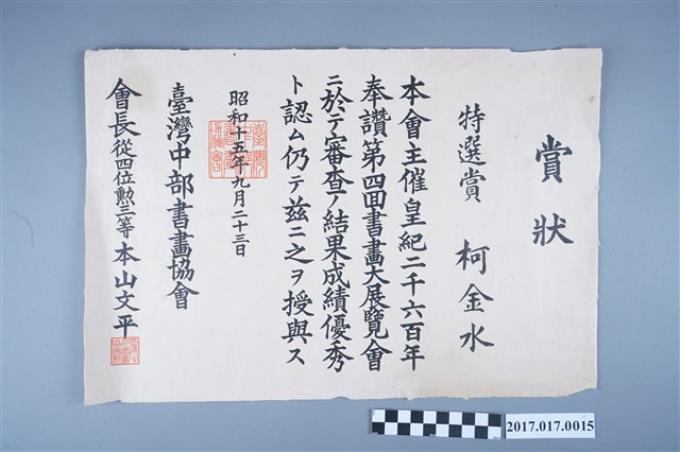 賞狀
特選賞 柯金水
本會主催皇紀二千六百年
奉讚第四回書畫大展覽會
ニ於テ審查ノ結果成績優秀
ト認ム仍テ茲ニ之ヲ授與ス
昭和十五年九月二十三日
臺灣中部書畫協會
會長從四位勳三等本山文平
2017.017.0015